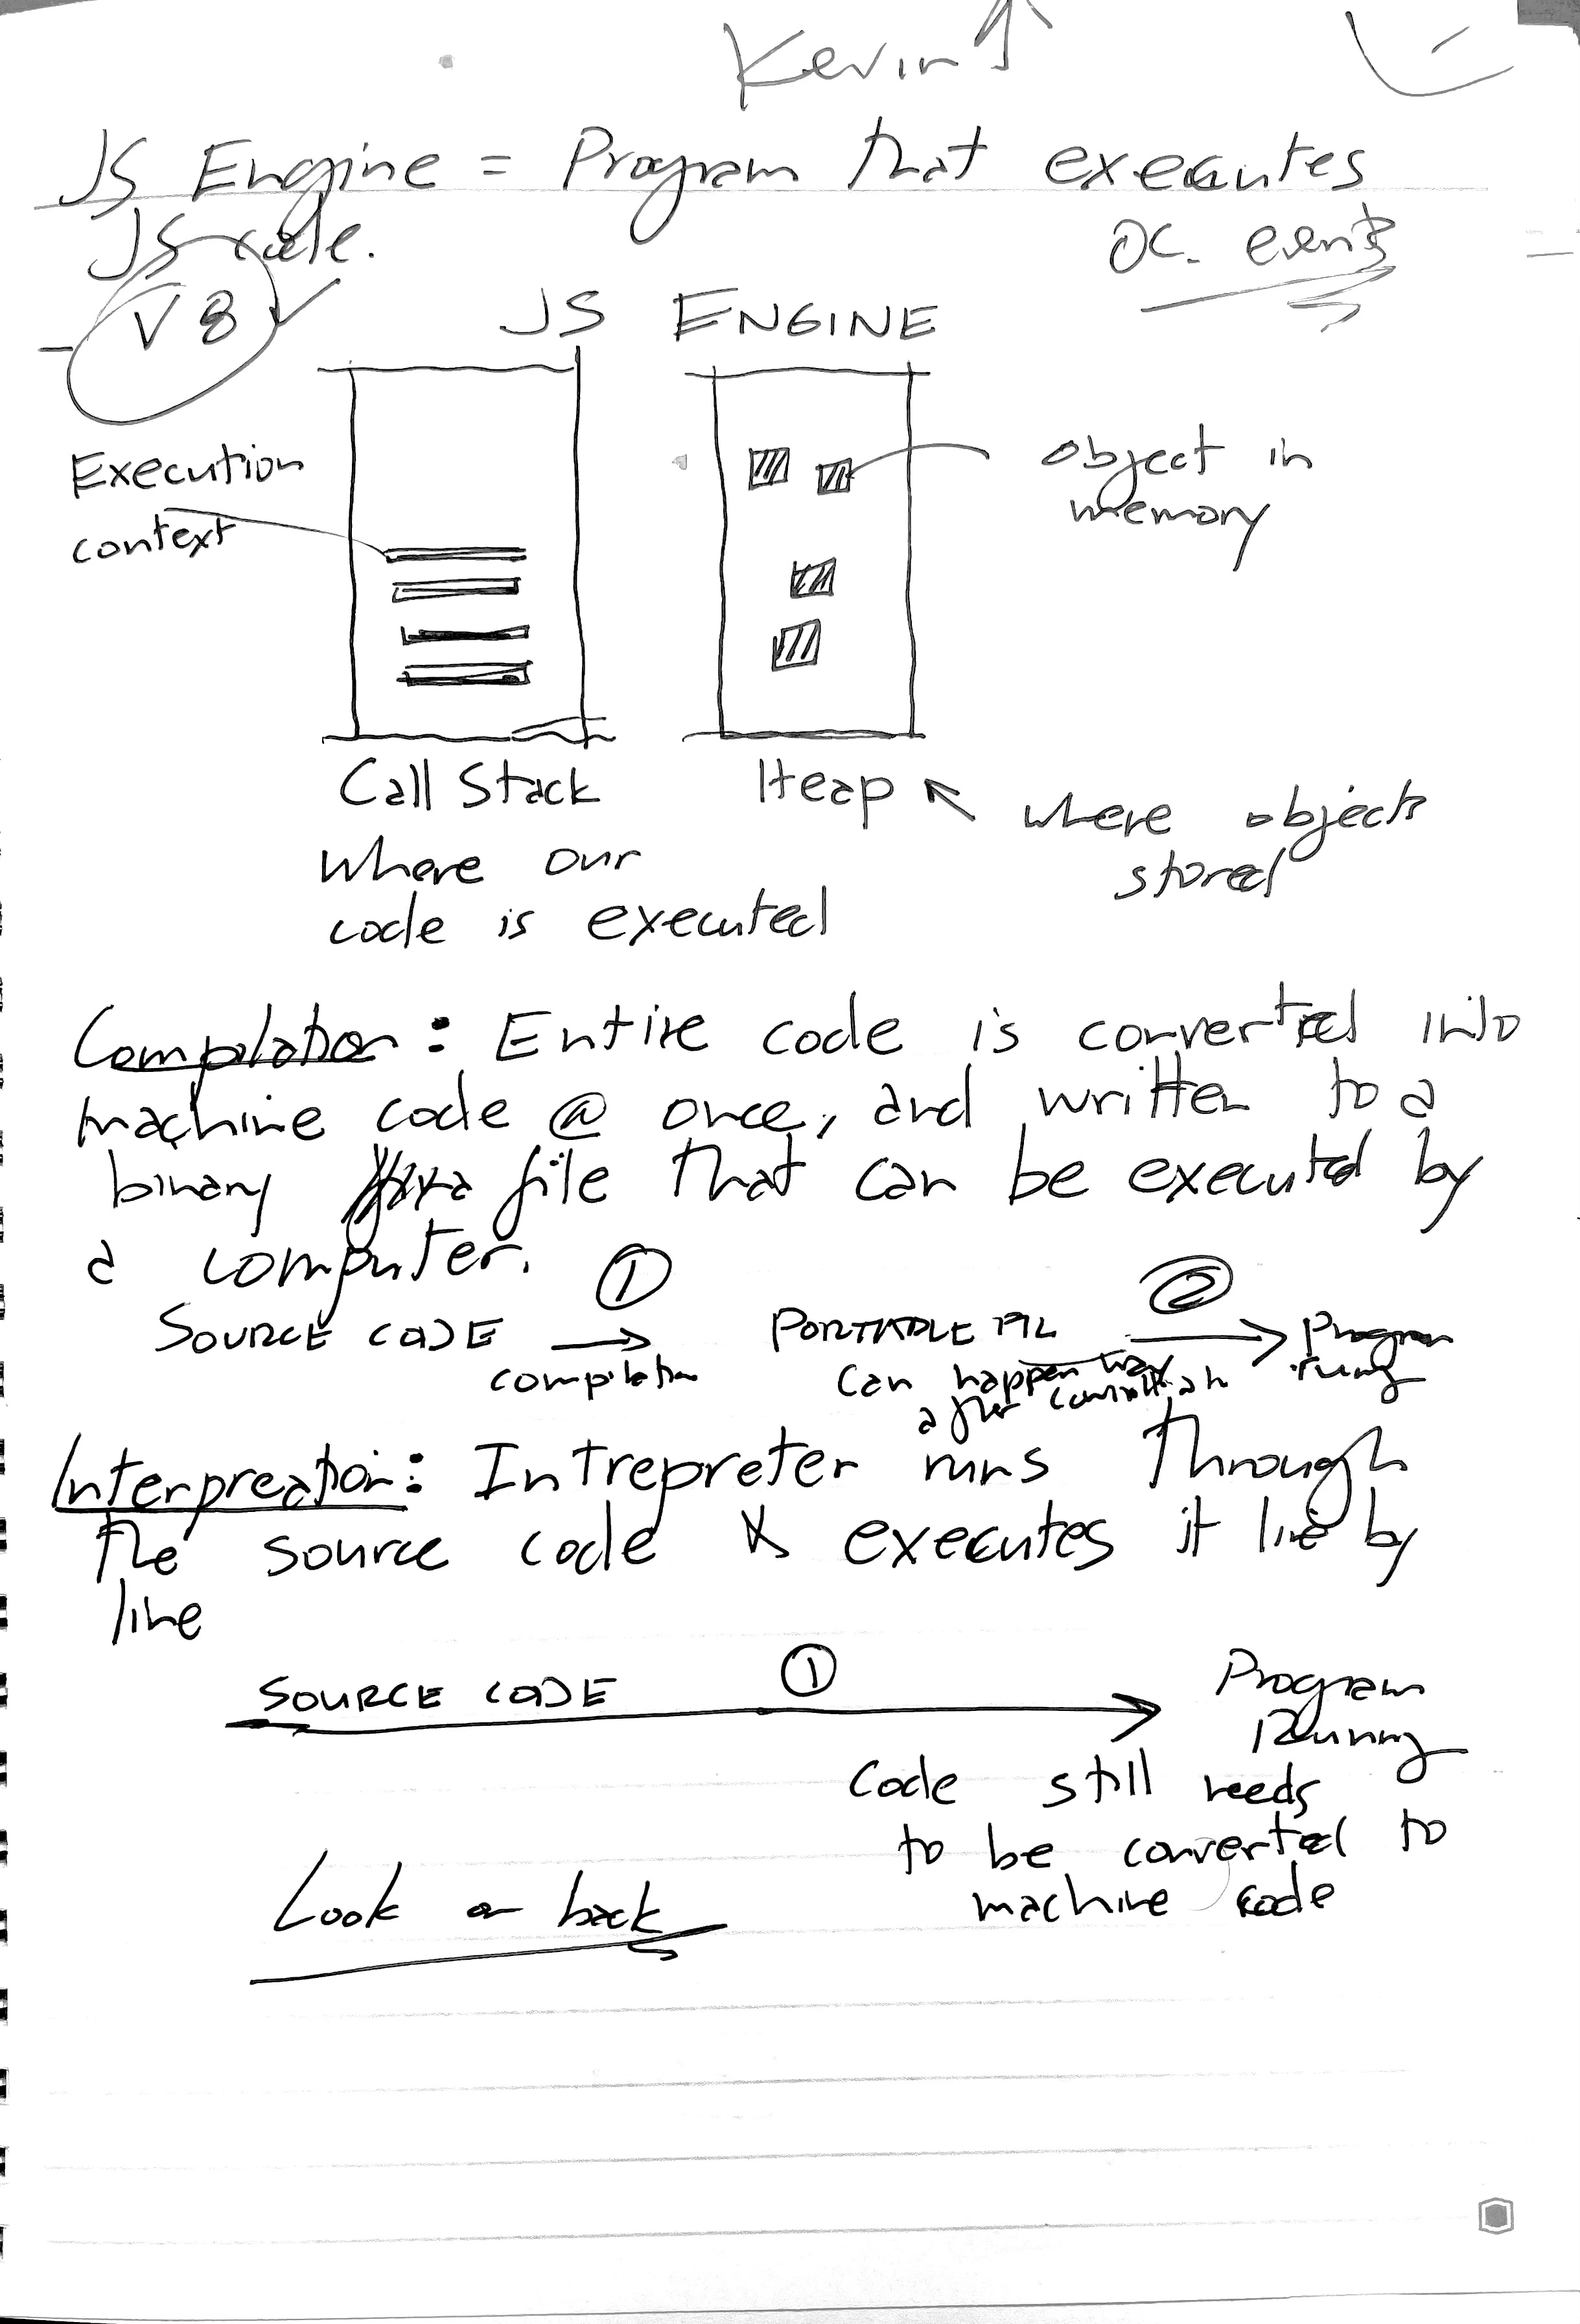 Kevin
JS Engine = Program that executes
JS code.
OC. events
V8
JS ENGINE
Execution
context
object in
memory
Call Stack
Where our
code is executed
Heap
where objects
stored
Compilation: Entire code is converted into
machine code @ once, and written to a
binary file that can be executed by
a computer.
1
2
SOURCE CODE
compilation
PORTABLE FIL
can happen way
after compilation
Program
runing
Interpreation: Intrepreter runs through
the source code & executes it line by
line
1
SOURCE CODE
Program
Running
Code still needs
to be converted to
machine code
Look on back